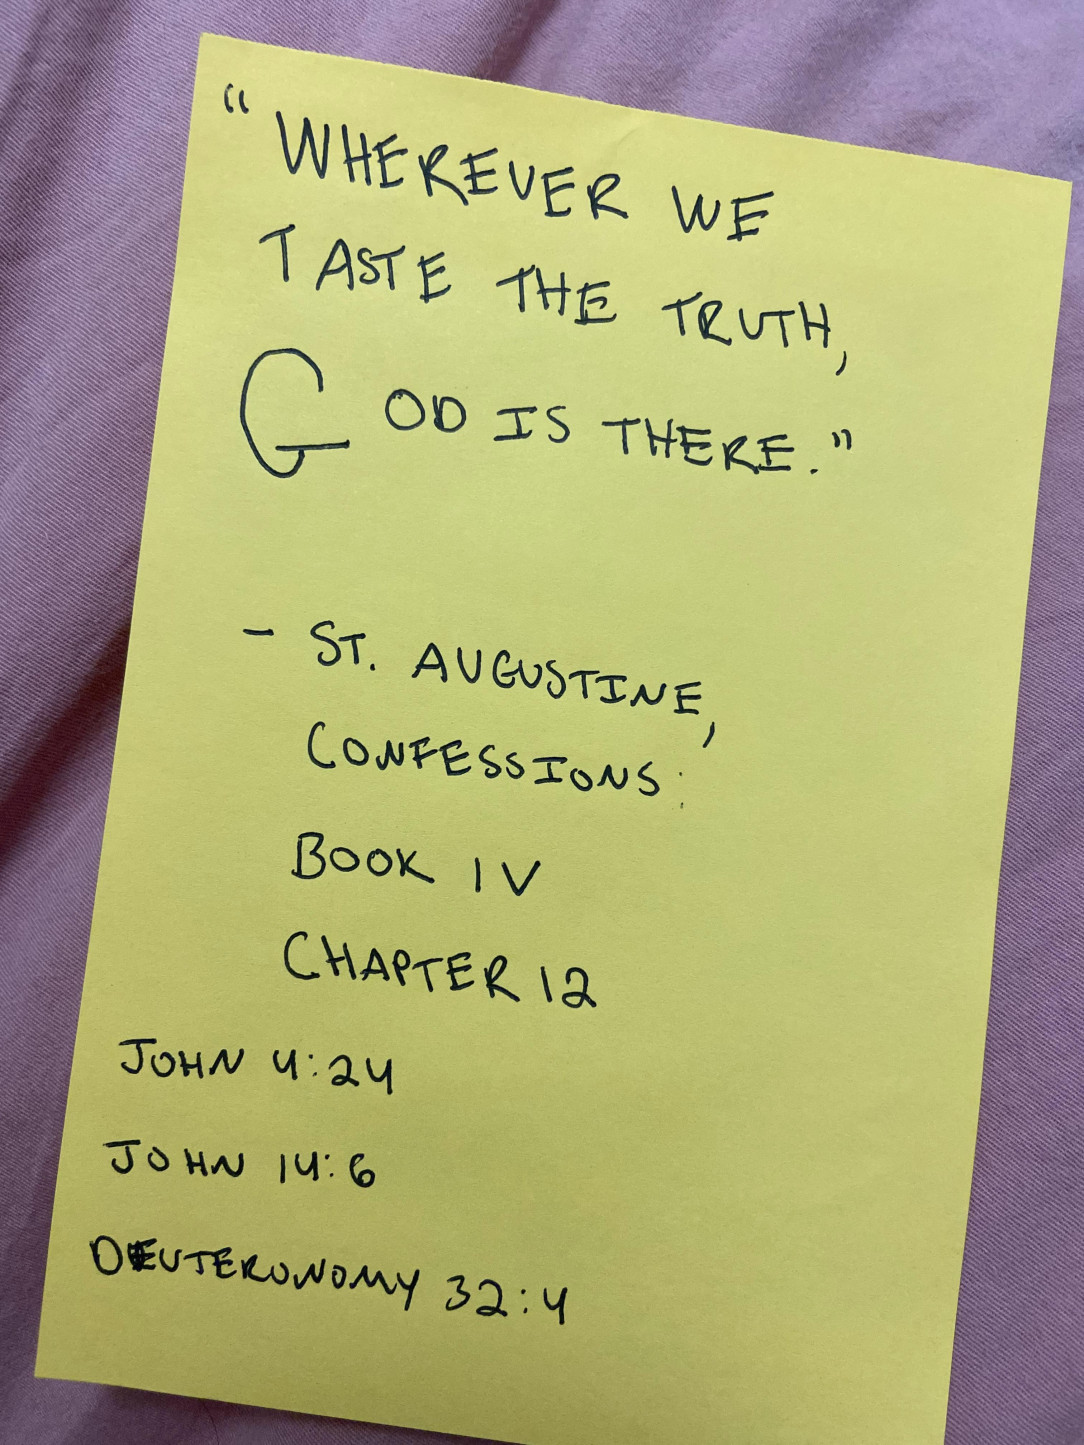 "WHEREVER WE
TASTE THE TRUTH,
GOD IS THERE."
- ST. AUGUSTINE,
CONFESSIONS:
BOOK IV
CHAPTER 12
JOHN 4:24
JOHN 14:6
DEUTERONOMY 32:4